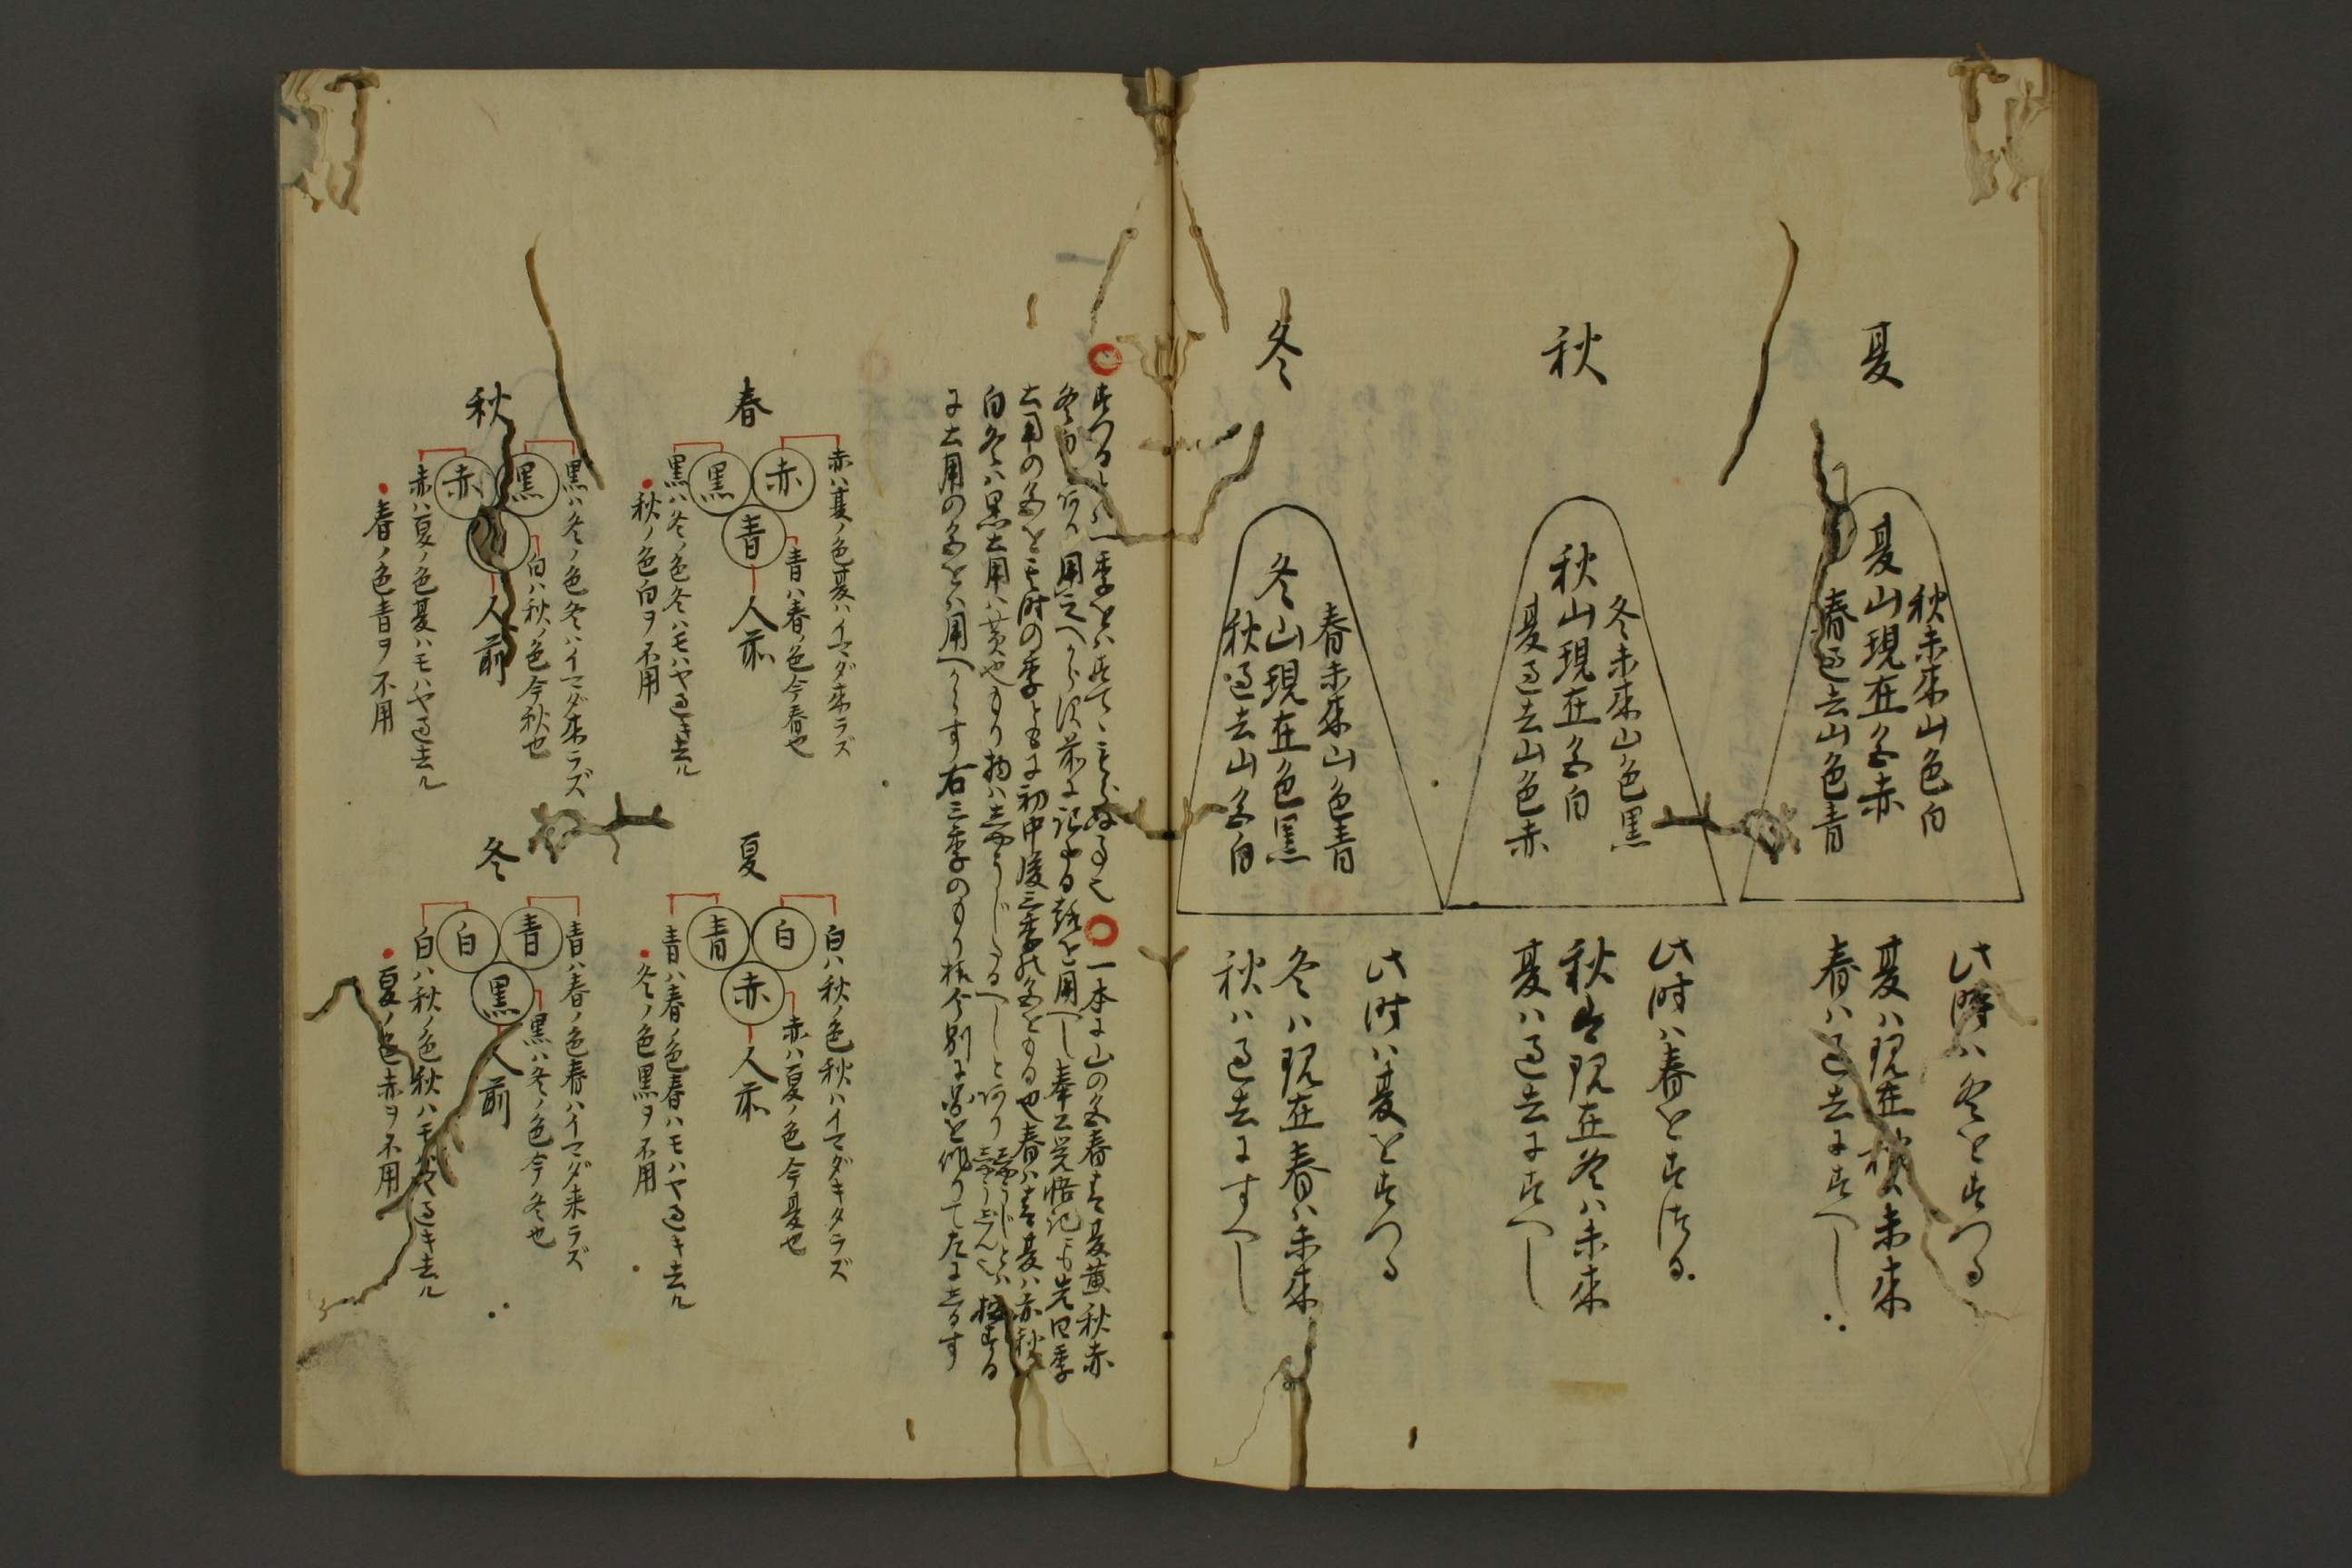 夏
秋未来山色白
夏山現在色赤
春過去山色青
此時ハ冬をすつる
夏ハ現在秋ハ未来
春ハ過去にすへし
秋
冬未来山色黒
秋山現在色白
夏過去山色赤
此時ハ春をすつる
秋は現在冬ハ未来
夏ハ過去にすへし
冬
春未来山色青
冬山現在色黒
秋過去山色白
此時ハ夏をすつる
冬ハ現在春ハ未来
秋ハ過去にすへし
一本に山の色春青夏黄秋赤
土用の色を其時の季ともに初中後三季の色とする也春ハ青夏ハ赤秋
白冬ハ黒土用ハ黄也
に土用の色をハ用へからす右三季のもり様今別に図を作りて左に志るす
春
赤ハ夏ノ色夏ハイマダ来ラズ
赤
青ハ春ノ色今春也
青
人前
黒
黒ハ冬ノ色冬ハモハヤ過キ去ル
秋ノ色白ヲ不用
夏
白ハ秋ノ色秋ハイマダキタラズ
白
赤ハ夏ノ色今夏也
赤
人前
青
青ハ春ノ色春ハモハヤ過キ去ル
冬ノ色黒ヲ不用
秋
黒ハ冬ノ色冬ハイマダ来ラズ
黒
白ハ秋ノ色今秋也
人前
赤
赤ハ夏ノ色夏ハモハヤ過去ル
春ノ色青ヲ不用
冬
青ハ春ノ色春ハイマダ来ラズ
青
黒ハ冬ノ色今冬也
黒
人前
白
白ハ秋ノ色秋ハモハヤ過キ去ル
夏ノ色赤ヲ不用